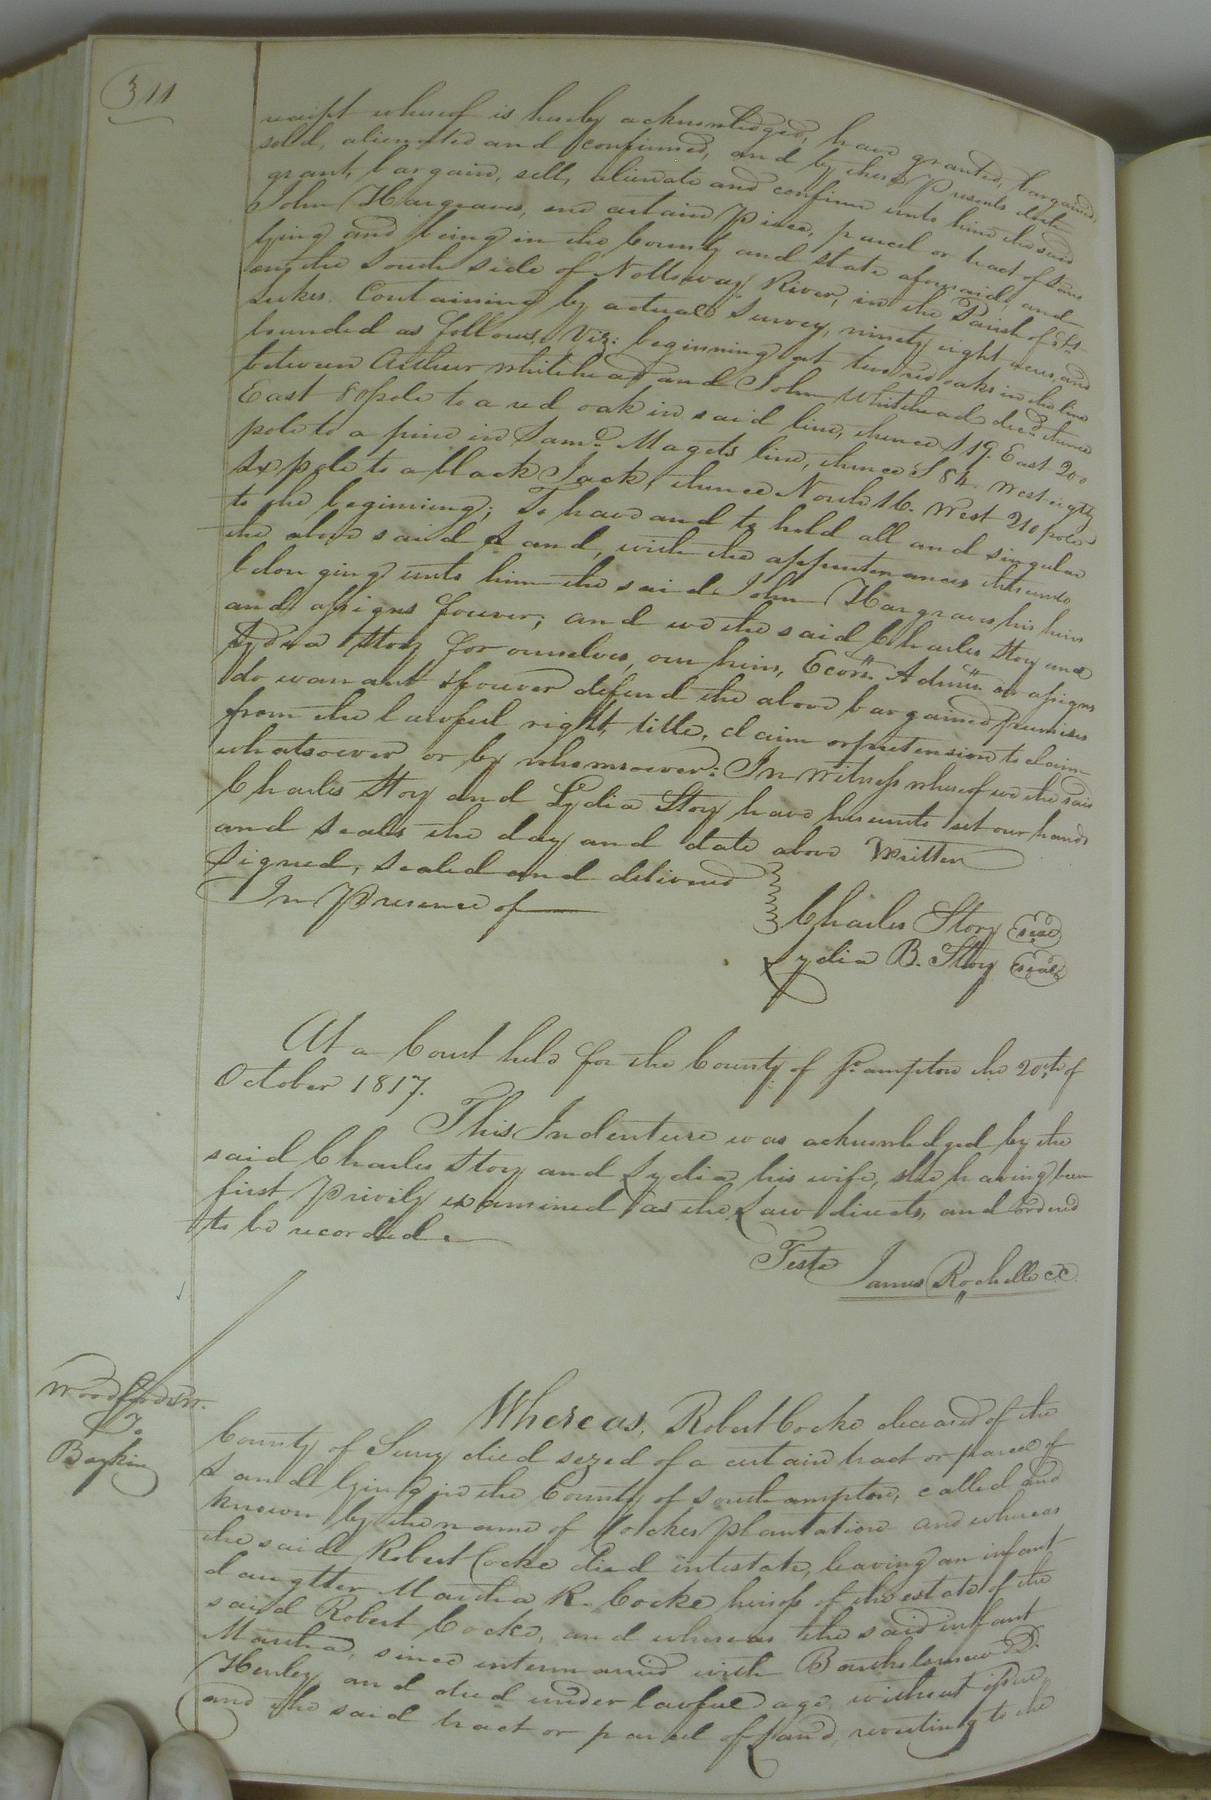 311
receipt whereof is hereby acknowledged, have granted, bargained,
sold, alienated and confirmed, and by these Presents doth
grant, bargain, sell, alienate and confirm unto him the said
John Hargraves, one certain Piece, parcel or tract of Land
lying and being in the County and State aforesaid, and
on the South side of Nottoway River, in the Parish of St.
Lukes. Containing by actual Survey, ninety eight acres, and
bounded as follows, Viz: beginning at two red oaks in the line
between Arthur Whitehead and John Whitehead decd. thence
East 80 pole to a red oak in said line, thence S 19. East 200
pole to a pine in Saml. Magets line, thence S 84. West eighty
six pole to a black Jack, thence North 16. West 210 poles
to the beginning; To have and to hold all and singular
the above said Land, with the appurtenances thereunto
belonging unto him the said John Hargraves his heirs
and assigns forever; and we the said Charles Story and
Lydia Story for ourselves, our heirs, Ecors. Admrs. or assigns
do warrant & forever defend the above bargained Premises
from the lawful right, title, claim or pretension to claim
whatsoever or by whomsoever: In Witness whereof we the said
Charles Story and Lydia Story have hereunto set our hands
and Seals the day and date above Written
Signed, Sealed and delivered
In Presence of
Charles Story seal
Lydia B. Story seal
At a Court held for the County of So.ampton the 20th of
October 1817.
This Indenture was acknowledged by the
said Charles Story and Lydia his wife, she having been
first Privily examined as the Law directs, and ordered
to be recorded.
Teste James Rochelle C.C.
To.
Boykin
Whereas, Robert Cocke deceased of the
County of Surry died sezed of a certain tract or parcel of
Land lying in the County of Southampton, called and
known by the name of Cockes Plantation and whereas
the said Robert Cocke died intestate, leaving an infant
daughtter Martha R. Cocke heiress of the estate of the
said Robert Cocke, and whereas the said infant
Martha, since intermarried with Bartholomew D.
Henley and died under lawful age without issue
and the said tract or parcel of Land, reverting to the